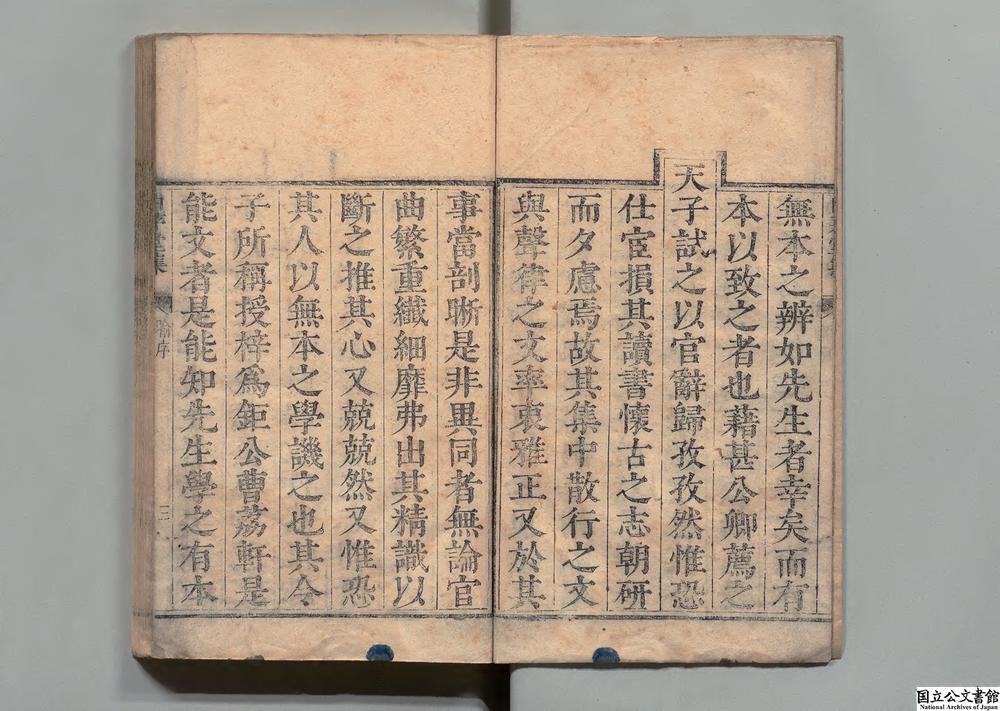 無本之辨如先生者幸矣而有
本以致之者也藉甚公卿薦之
天子試之以官辭歸孜孜然惟恐
仕宦損其讀書懷古之志朝研
而夕慮焉故其集中散行之文
與聲律之文率衷雅正又於其
事當剖晣是非異同者無論官
曲繁重纖細靡弗出其精識以
斷之推其心又兢兢然又惟恐
其人以無本之學譏之也其令
子所稱授梓爲鉅公曹荔軒是
能文者是能知先生學之有本
序
三
国立公文書館
National Archives of Japan